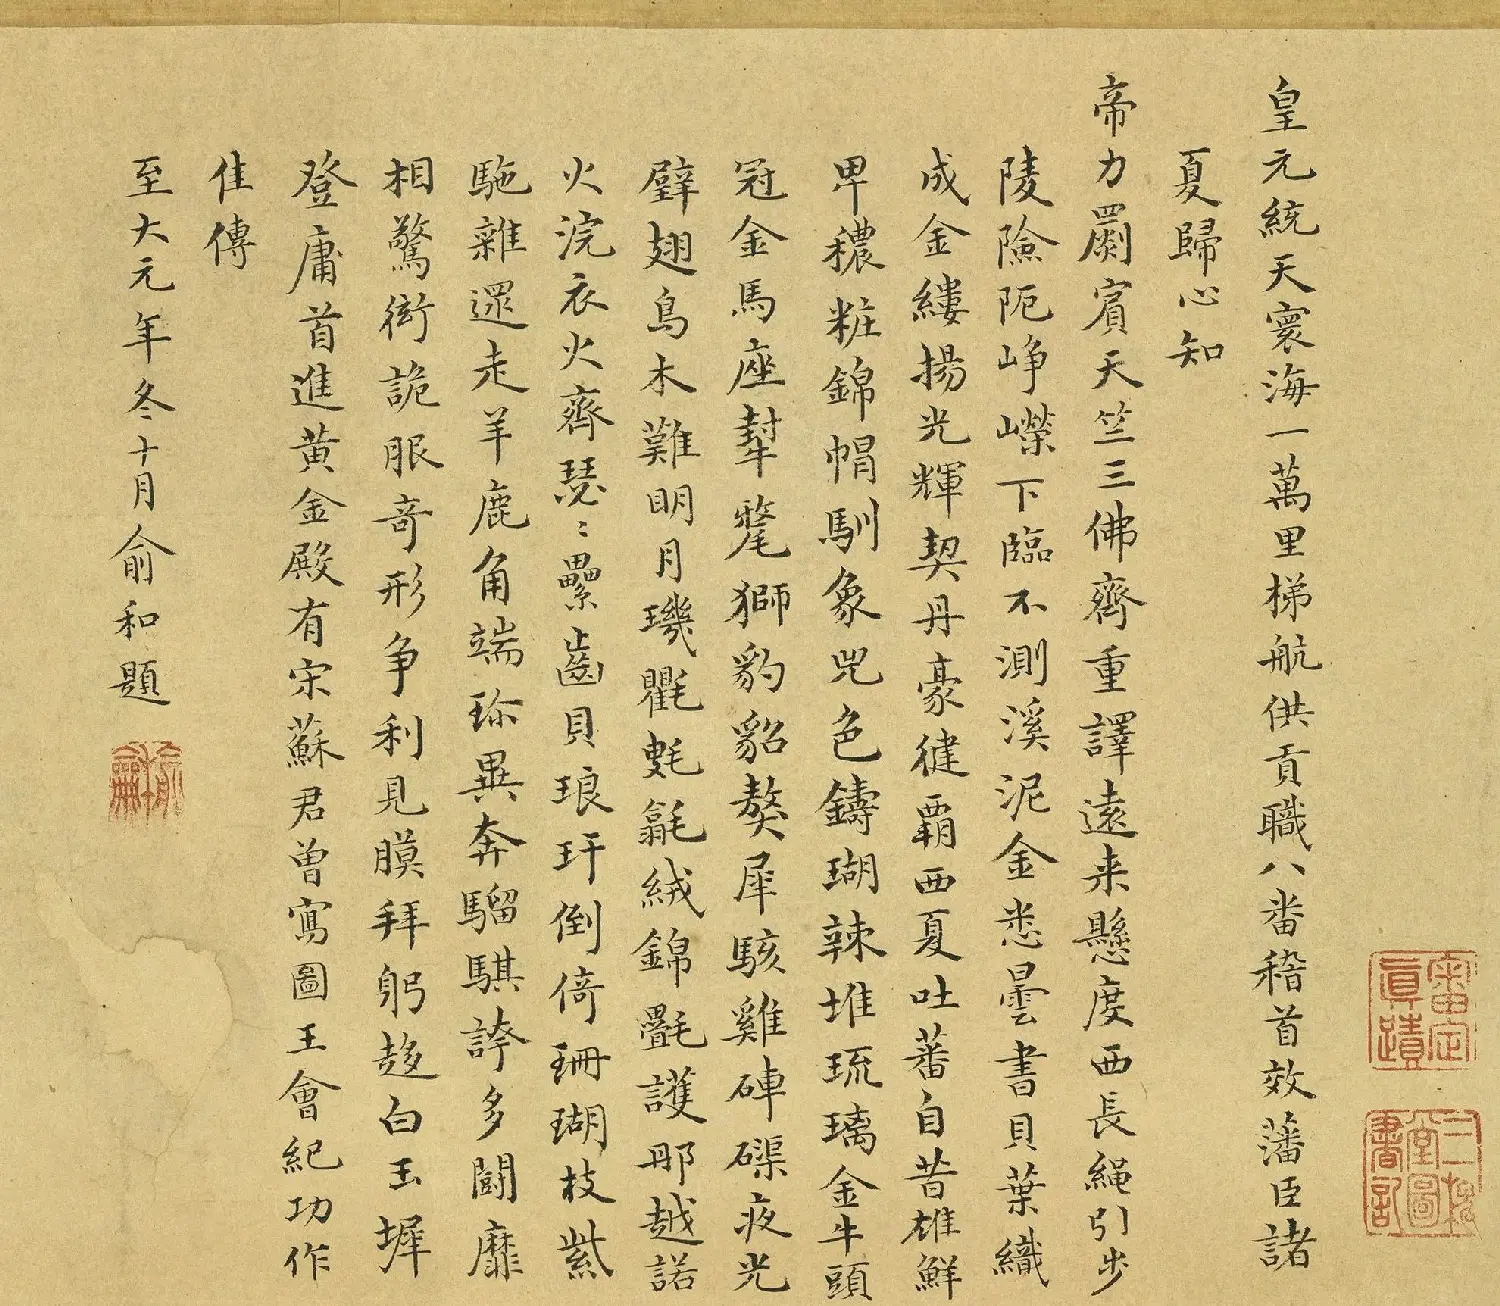 皇元統天寰海一萬里梯航供貢職八番稽首效藩臣諸
夏歸心知
帝力罽賓天竺三佛齊重譯遠来懸度西長繩引步
陵險阨崢嶸下臨不測溪泥金悉曇書貝葉織
成金縷揚光輝契丹豪健覇西夏吐蕃自昔雄鮮
卑穠粧錦帽馴象兕色鑄瑚辣堆琉璃金牛頭
冠金馬座犎氂獅豹貂獒犀駭雞硨磲夜光
璧翅鳥木難明月璣氍㲣毹絨錦氎護那越諾
火浣衣火齊瑟〻纍齒貝琅玕倒倚珊瑚枝紫
駞雜遝走羊鹿角端珎異奔騮騏誇多闘靡
相驚衒詭服奇形争利見膜拜躬趍白玉墀
登庸首進黄金殿有宋蘇君曽寫圖王會紀功作
佳傳
至大元年冬十月俞和題
審定真蹟
三槐堂圖書記